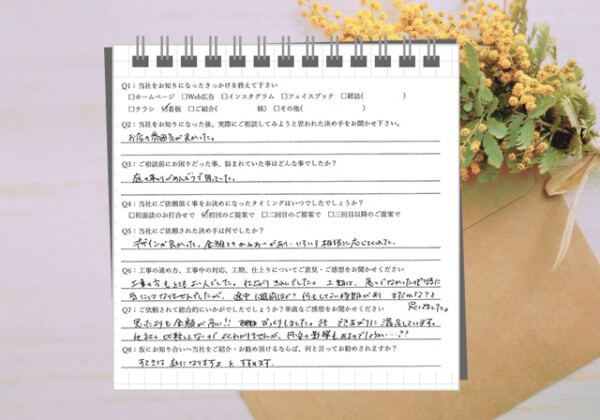 Q1：当社をお知りになったきっかけを教えて下さい
□ホームページ □Web広告 □インスタグラム □フェイスブック □雑誌( )
□チラシ ☑看板 □ご紹介( 様) □その他( )
Q2：当社をお知りになった後、実際にご相談してみようと思われた決め手をお聞かせ下さい。
お店の雰囲気が良かった。
Q3：ご相談前にお困りだった事、悩まれていた事はどんな事でしたか？
庭の草刈りがめんどうで困っていた。
Q4：当社にご依頼頂く事をお決めになったタイミングはいつでしたでしょうか？
□初面談のお打合せで ☑初回のご提案で □二回目のご提案で □三回目以降のご提案で
Q5：当社にご依頼された決め手は何でしたか？
デザインが良かった。金額とのかねあいがあり、いろいろ相談に応じてくれた。
Q6：工事の進め方、工事中の対応、工期、仕上りについてご意見・ご感想をお聞かせください
工事の方もとてもよい人でした。仕上がりきれいでした。工期は、急いでなかったので特に
気にはなりませんでしたが、途中1週間ほど何もしない時期があり
思いました。
Q7：ご依頼されて総合的にいかがでしたでしょうか？率直なご感想をお聞かせください
思ったよりも金額が高い!! びっくりしました。でもできあがりに満足しています。
他社と比較してないがよくわかりませんが、円安の影響もあるのでしょうか…!?
Q8：仮にお知り合いへ当社をご紹介・お勧め頂けるならば、何と言ってお勧めされますか？
すてきな庭になりますよとすすめます。